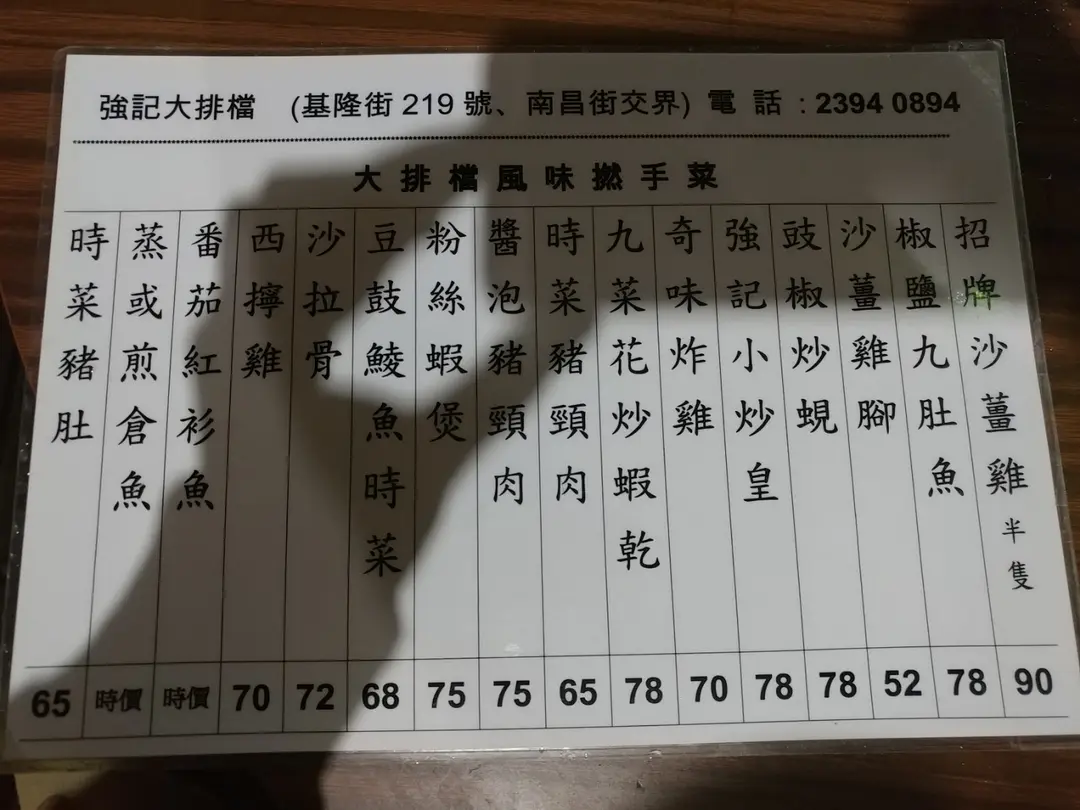 強記大排檔 (基隆街 219 號、南昌街交界) 電 話 : 2394 0894
大排檔風味撚手菜
招牌沙薑雞半隻 90
椒鹽九肚魚 78
沙薑雞腳 52
豉椒炒蜆 78
強記小炒皇 78
奇味炸雞 70
九菜花炒蝦乾 78
時菜豬頸肉 65
醬泡豬頸肉 75
粉絲蝦煲 75
豆鼓鯪魚時菜 68
沙拉骨 72
西擰雞 70
番茄紅衫魚 時價
蒸或煎倉魚 時價
時菜豬肚 65